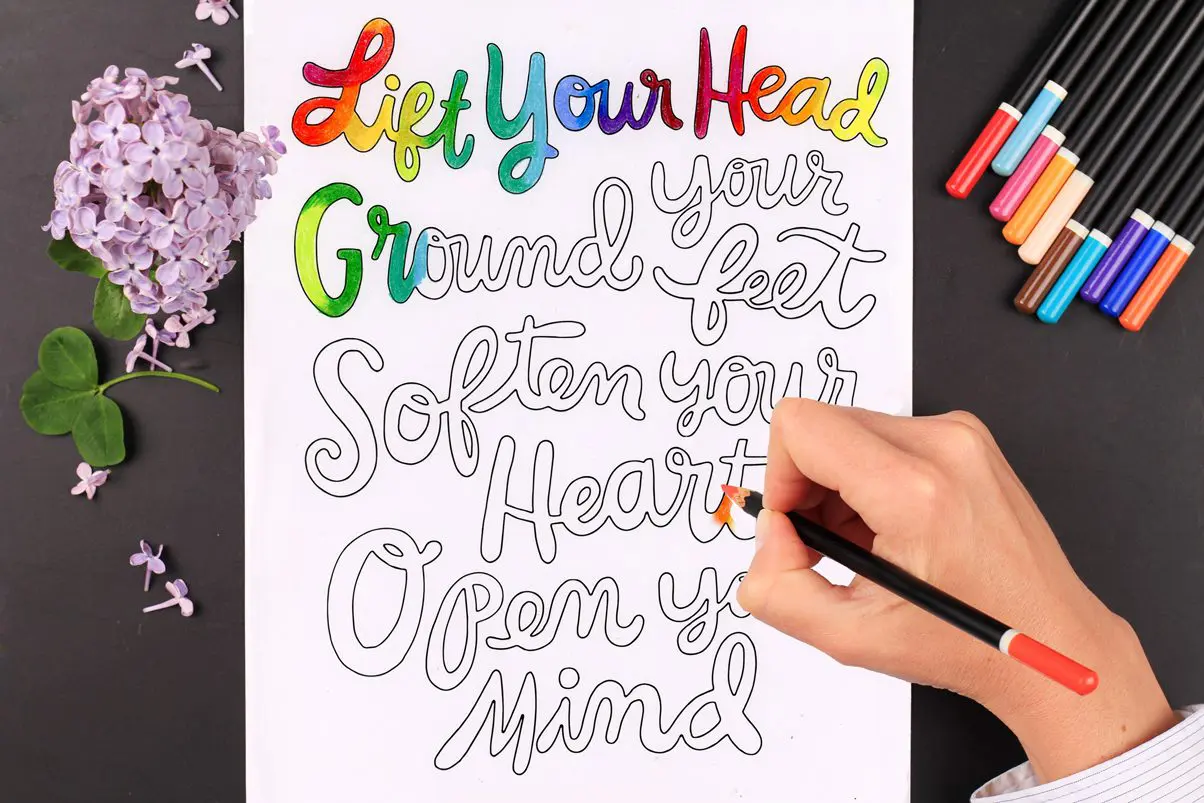 Lift Your Head
Ground your
feet
Soften your
Heart
Open yo
Mind